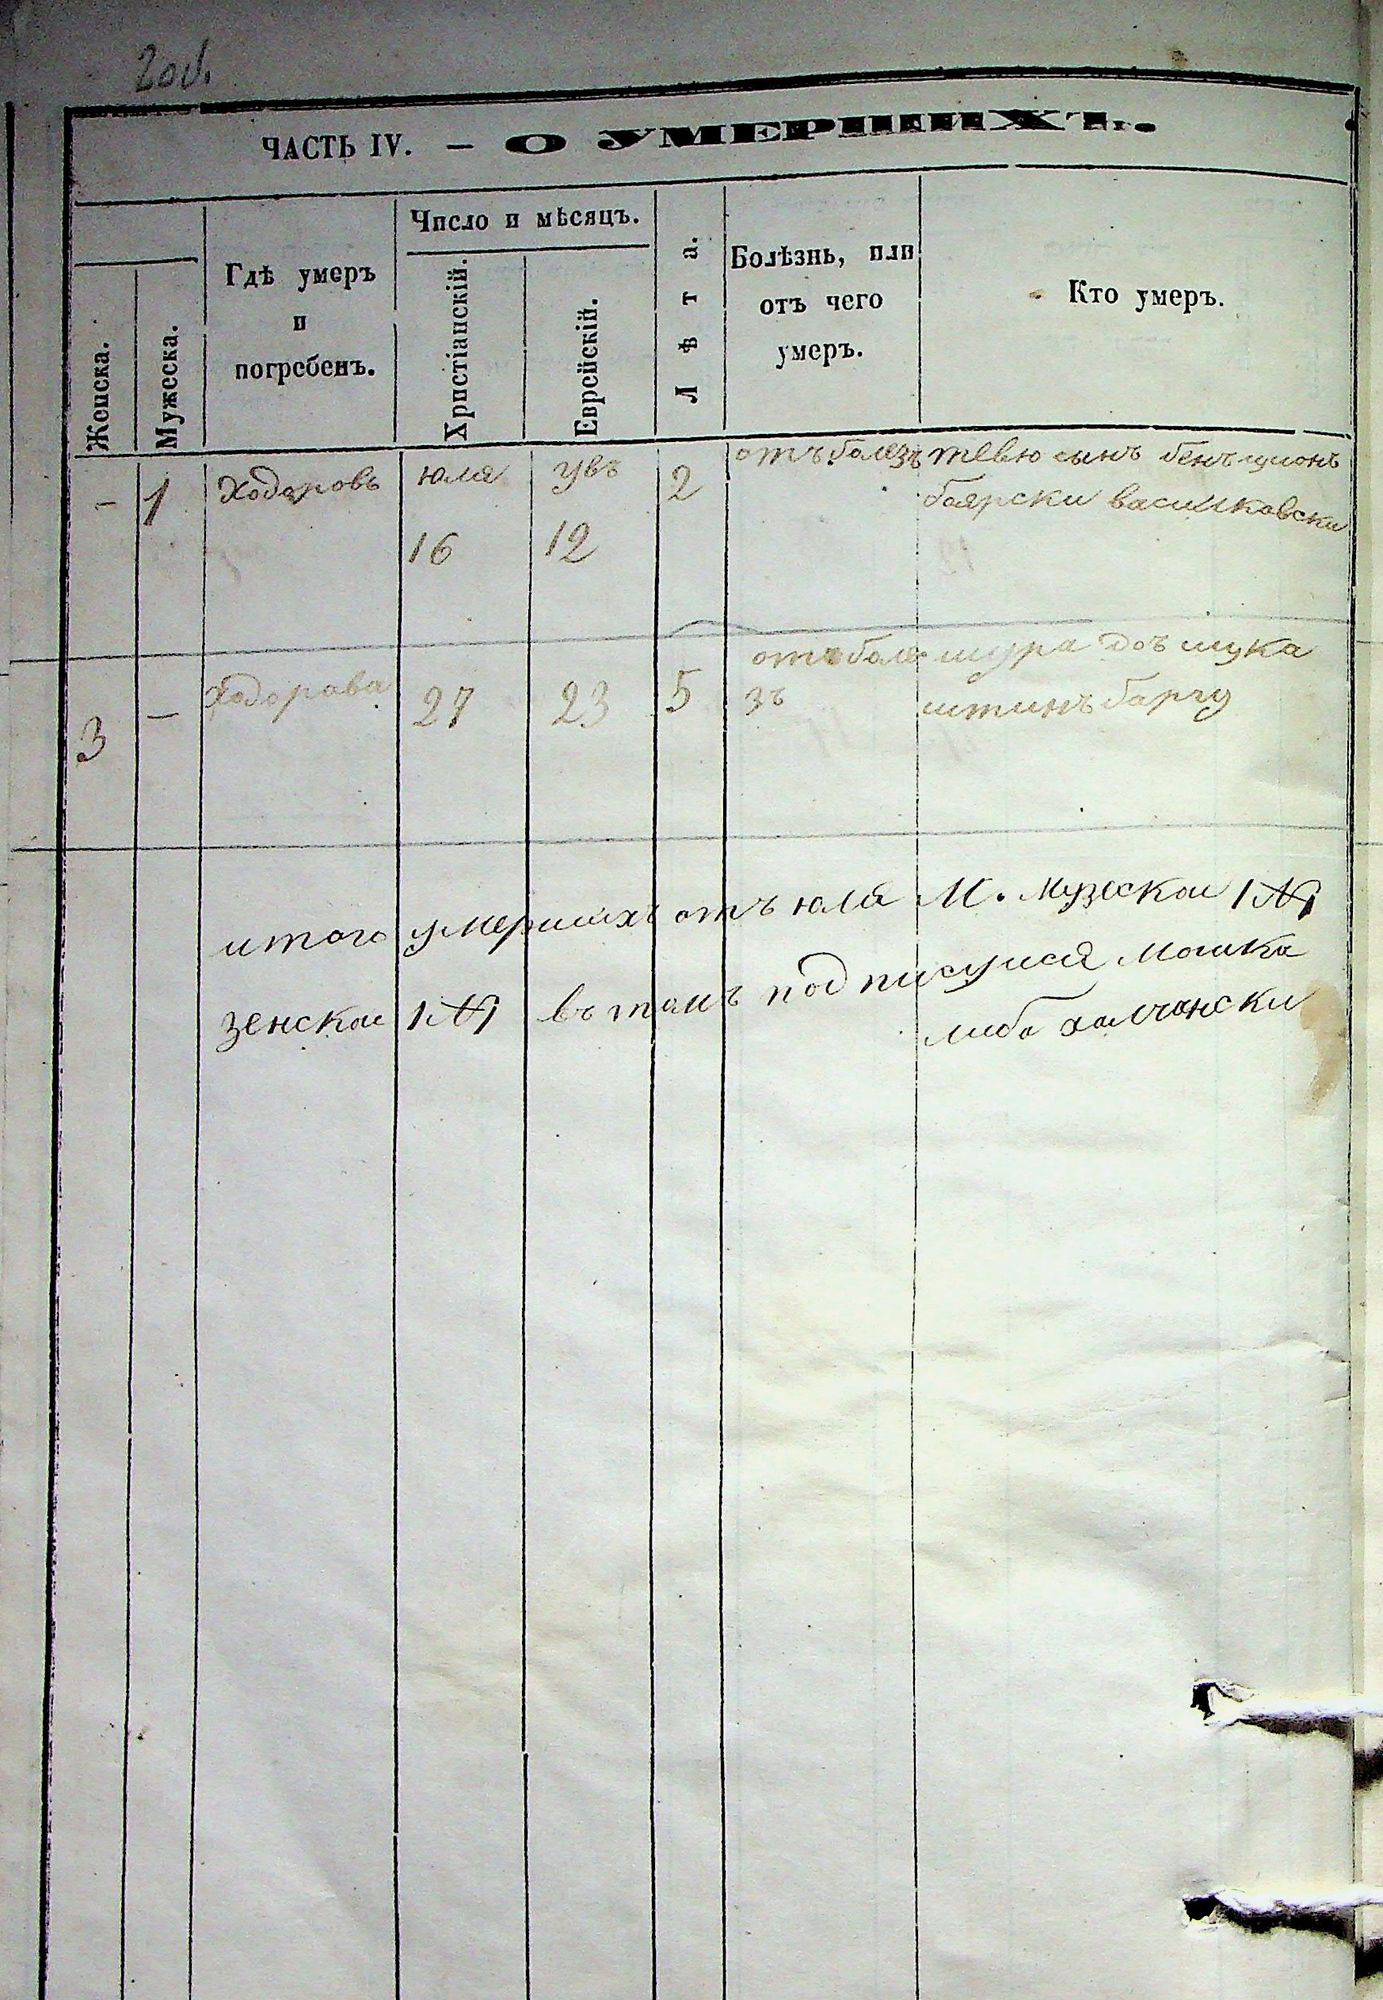 20об.
ЧАСТЬ IV. — О УМЕРШИХЪ.
Женска.
Мужеска.
Гдѣ умеръ
и
погребенъ.
Число и мѣсяцъ.
Христіанскій.
Еврейскій.
Лѣта.
Болѣзнь, или
отъ чего
умеръ.
Кто умеръ.
– 1 Ходоровъ юля увъ 2 отъ болезъ тевю сынъ бенъ ционъ
16 12 боярски василковски
3 — Ходорова 27 23 5 отъ боле шура доъ шука
зъ штинъ баргу
итого умершихъ отъ юля М. музескои 1 №
зенскои 1 № въ томъ подписуися мошка
либа халчански